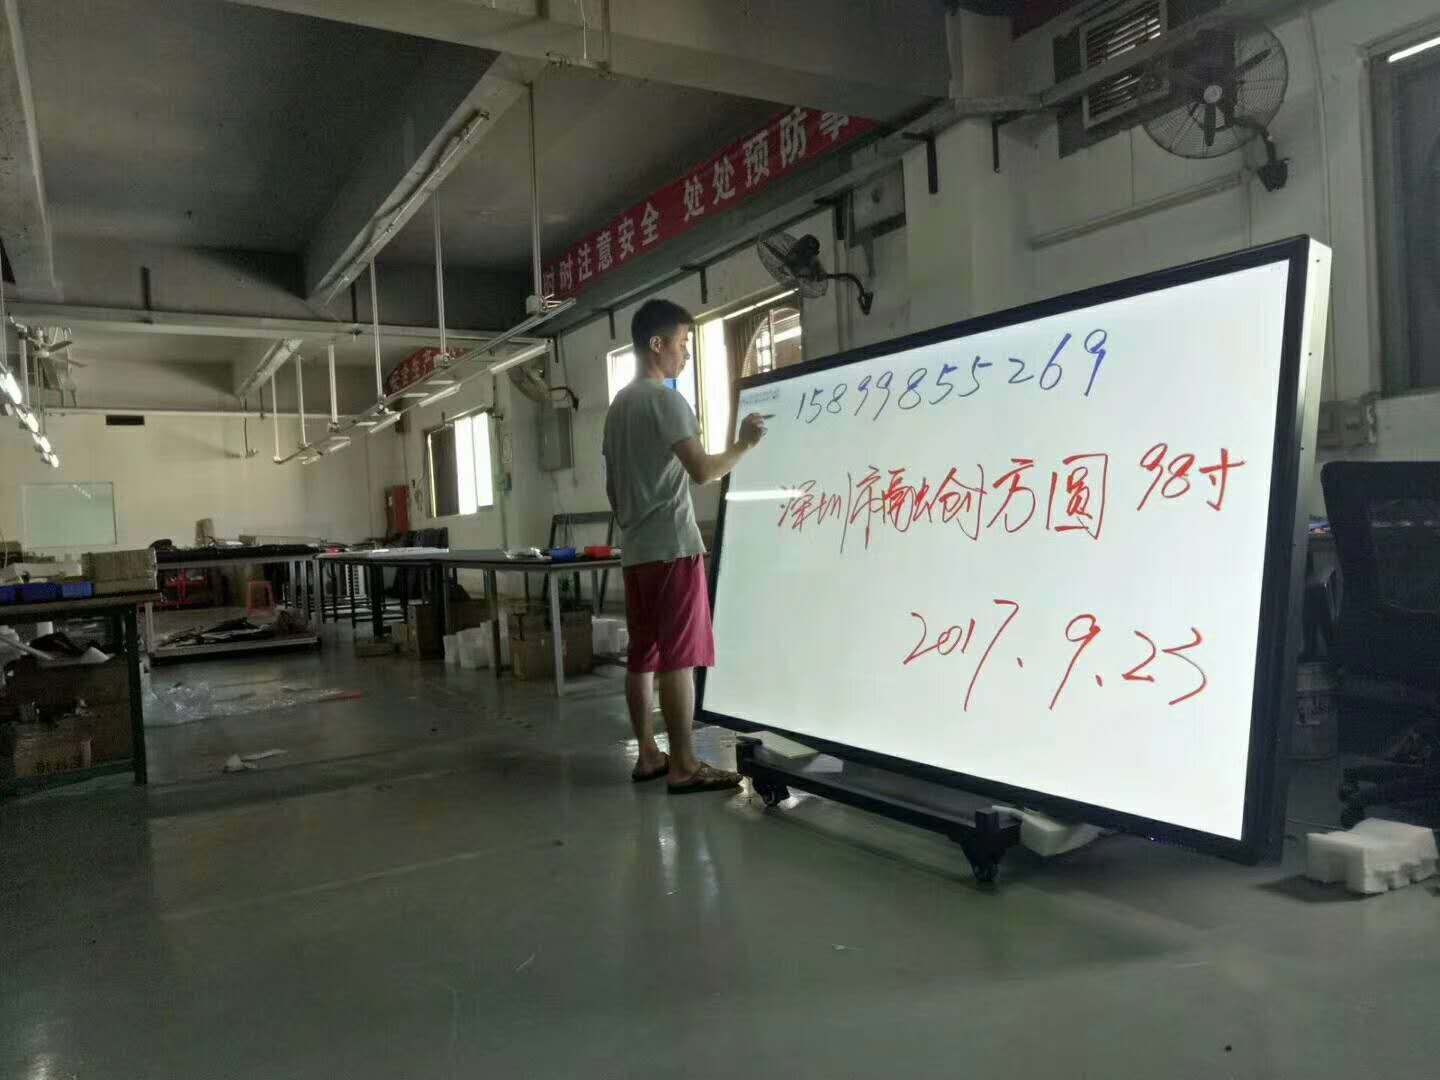 时时注意安全 处处预防事
安全生产
15899855269
深圳市融创方圆 98寸
2017.9.23